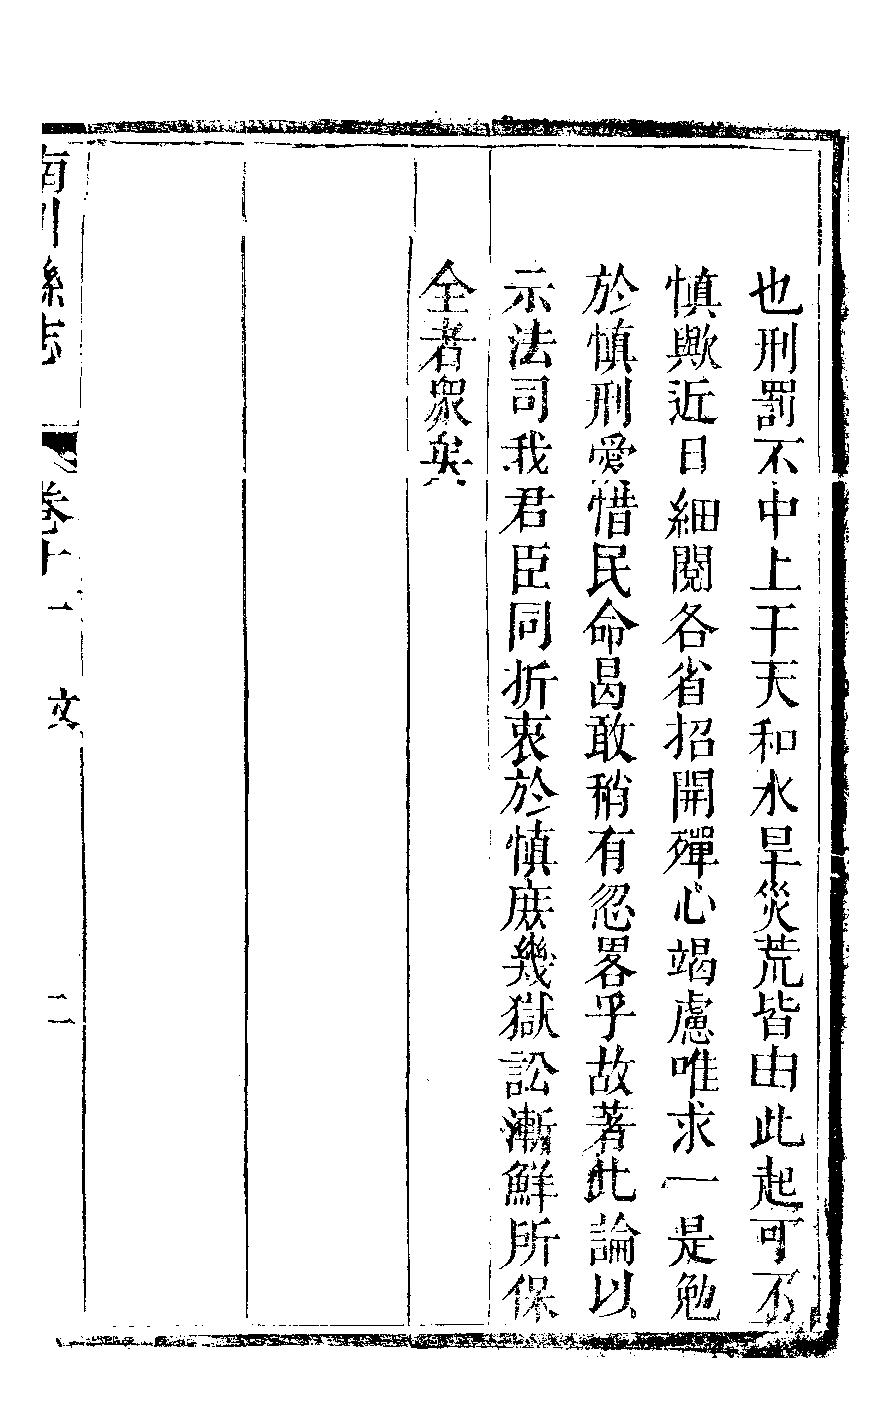 也刑罰不中上干天和水旱災荒皆由此起可不
慎歟近日細閱各省招開殫心竭慮唯求一是勉
於慎刑愛惜民命曷敢稍有忽畧乎故著此論以
示法司我君臣同折衷於慎庶幾獄訟漸鮮所保
全者衆矣
南川縣志 卷十一 文 二